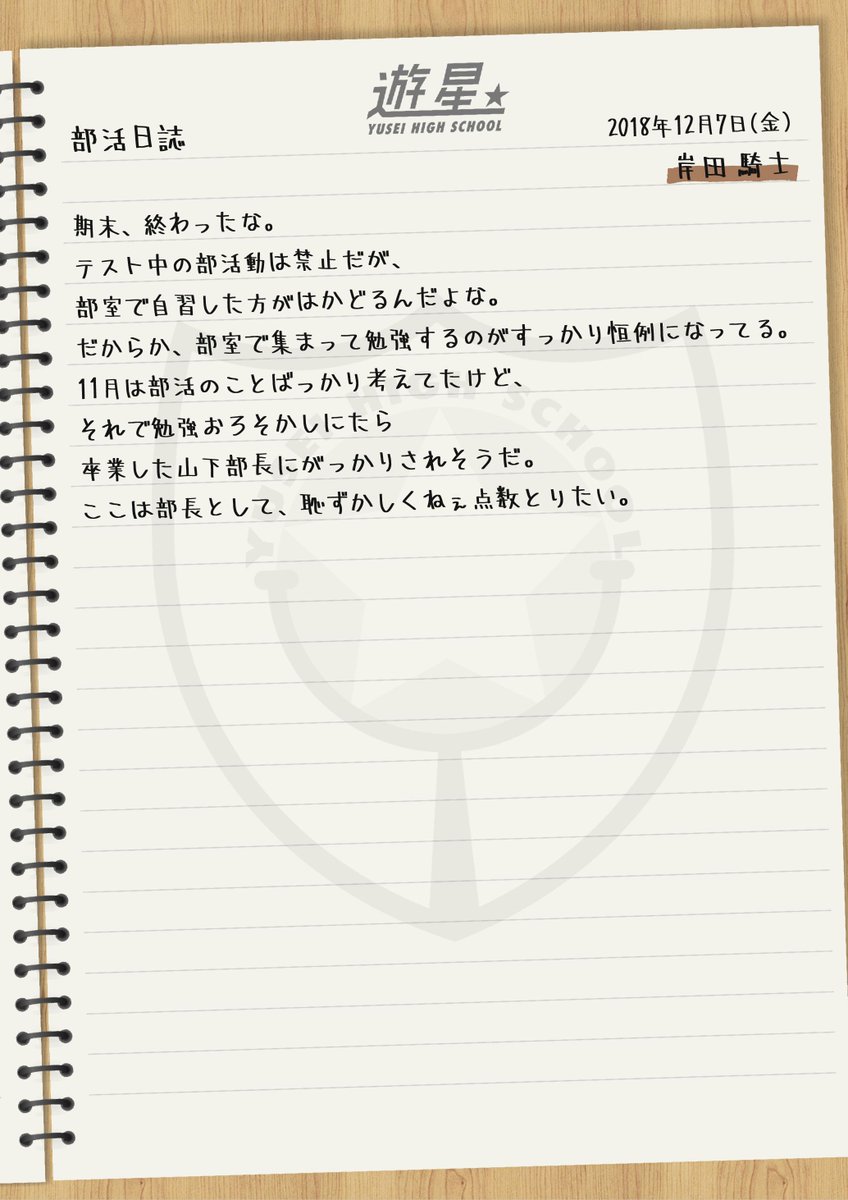 遊星★
YUSEI HIGH SCHOOL
部活日誌
2018年12月7日(金)
岸田 騎士
期末、終わったな。
テスト中の部活動は禁止だが、
部室で自習した方がはかどるんだよな。
だからか、部室で集まって勉強するのがすっかり恒例になってる。
11月は部活のことばっかり考えてたけど、
それで勉強おろそかしにたら
卒業した山下部長にがっかりされそうだ。
ここは部長として、恥ずかしくねぇ点数とりたい。
YUSEI HIGH SCHOOL